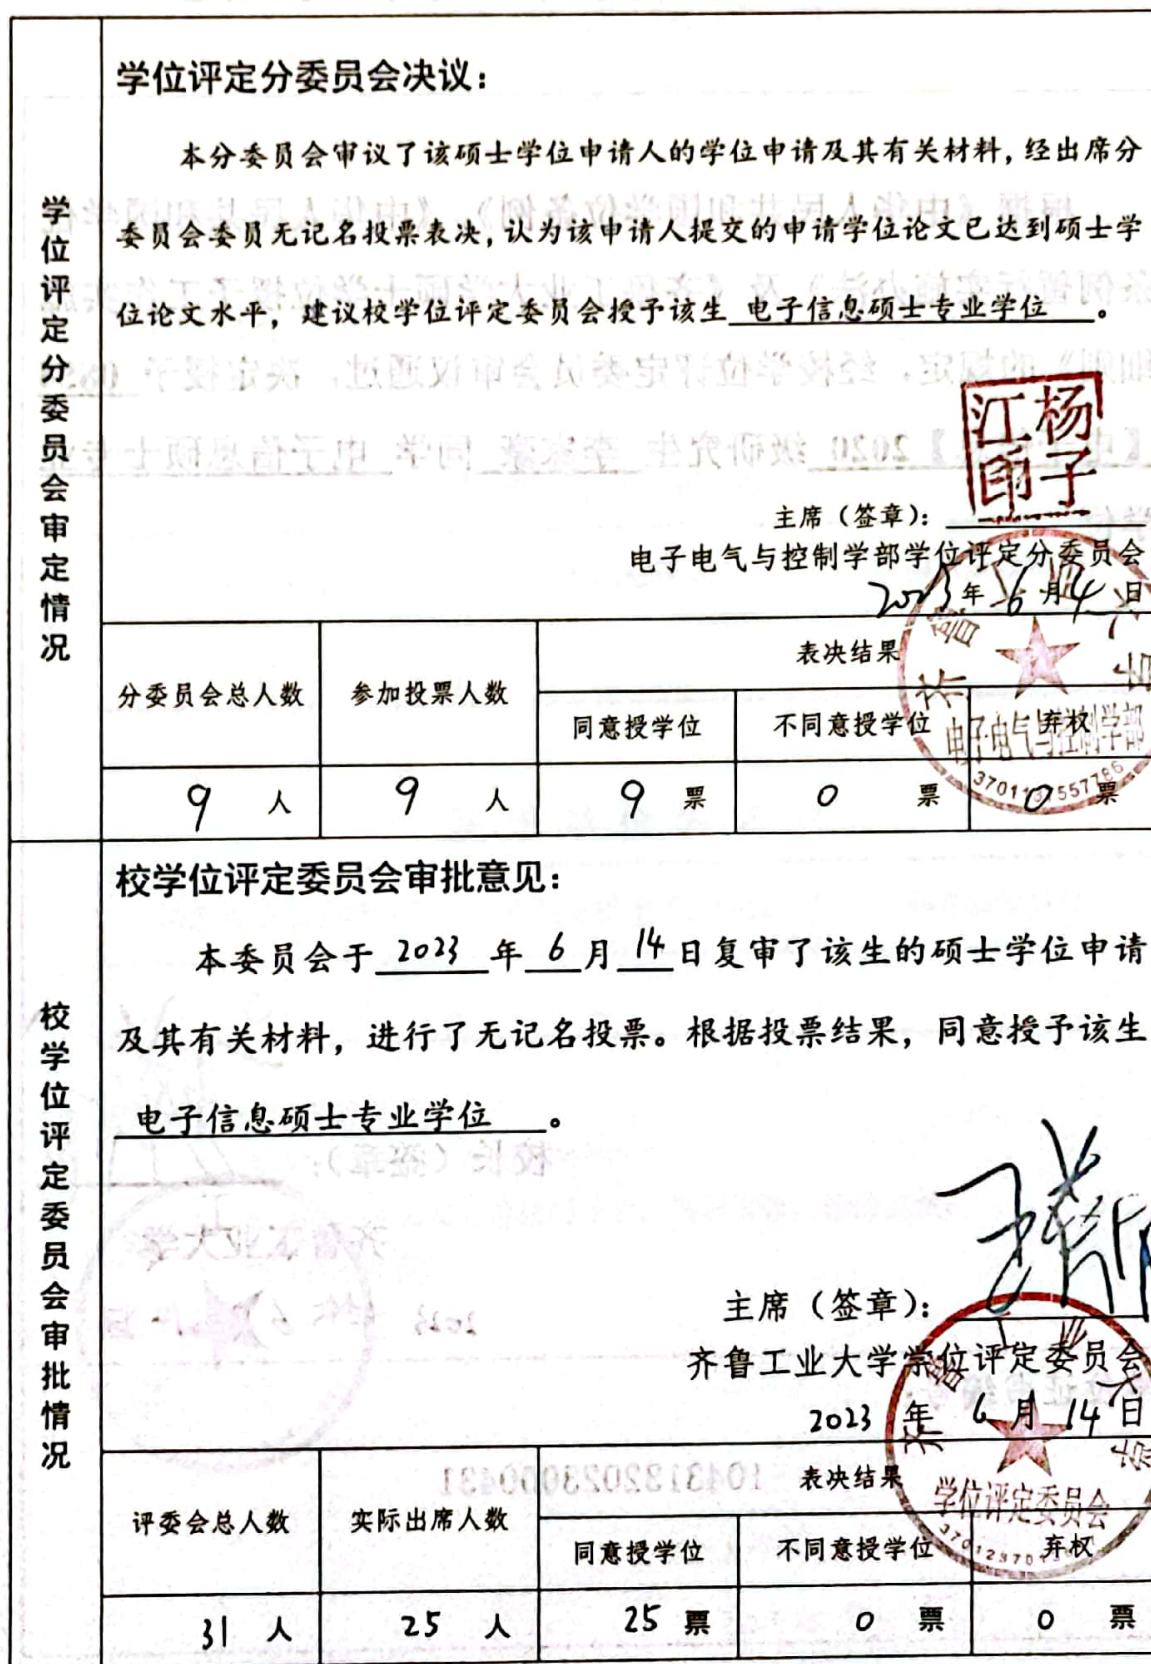 学位评定分委员会审定情况
学位评定分委员会决议：
本分委员会审议了该硕士学位申请人的学位申请及其有关材料，经出席分
委员会委员无记名投票表决，认为该申请人提交的申请学位论文已达到硕士学
位论文水平，建议校学位评定委员会授予该生 电子信息硕士专业学位 。
杨子江印
主席（签章）：
电子电气与控制学部学位评定分委员会
2023年 6 月 4 日
齐鲁工业大学
电子电气与控制学部
3701137557786
分委员会总人数 参加投票人数 表决结果
同意授学位 不同意授学位 弃权
9 人 9 人 9 票 0 票 0 票
校学位评定委员会审批情况
校学位评定委员会审批意见：
本委员会于 2023 年 6 月 14 日复审了该生的硕士学位申请
及其有关材料，进行了无记名投票。根据投票结果，同意授予该生
电子信息硕士专业学位 。
主席（签章）：
齐鲁工业大学学位评定委员会
2023 年 6 月 14 日
学位评定委员会
评委会总人数 实际出席人数 表决结果
同意授学位 不同意授学位 弃权
31 人 25 人 25 票 0 票 0 票